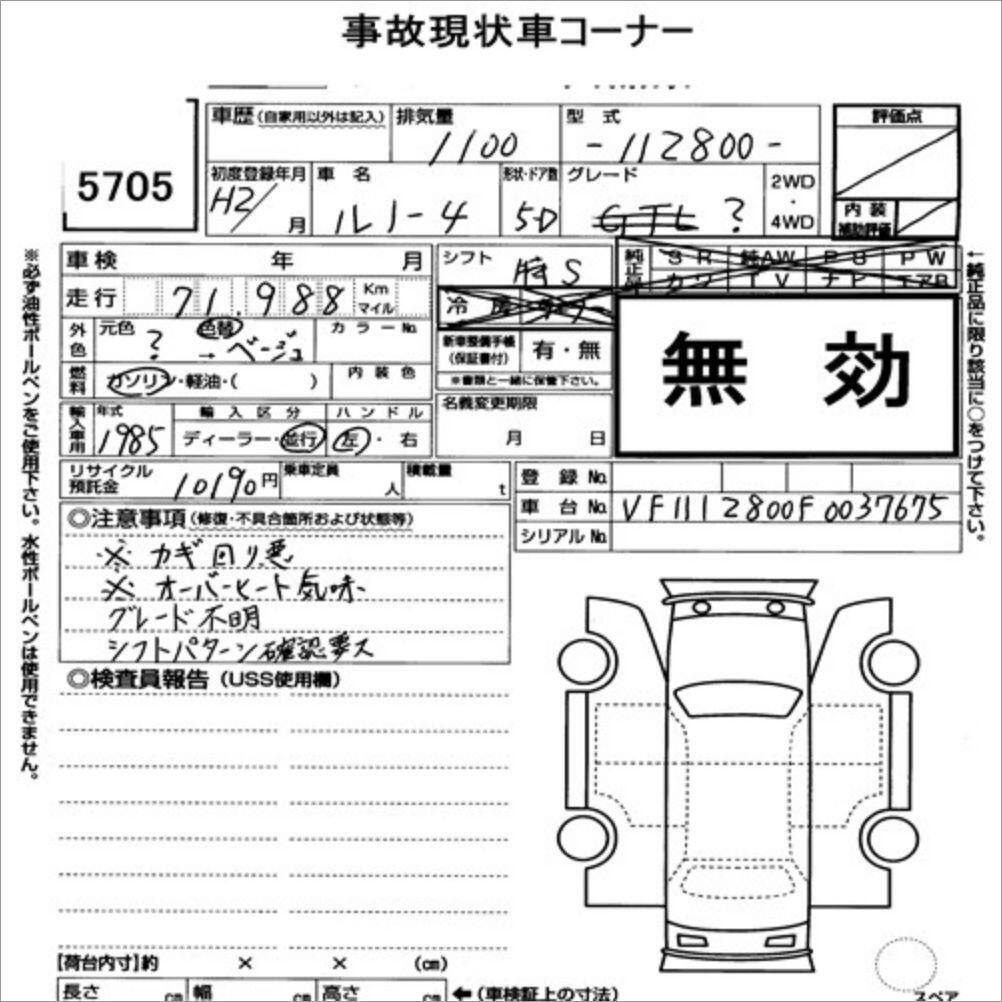 事故現状車コーナー
5705
車歴(自家用以外は記入) 排気量 1100 型式 -112800-
評価点
初度登録年月 H2/ 月 車名 ルノー4 形状・ドア数 5D グレード GTL ? 2WD・4WD
内装補助評価
車検 年 月
シフト 床5
純正品 SR 純AW PS PW
カワ TV ナビ エアB
走行 71,988 Km マイル
冷房
外色 元色 ? 色替 → ベージュ カラーNo.
新車整備手帳(保証書付) 有・無
※書類と一緒に保管下さい。
無効
燃料 ガソリン・軽油・( ) 内装色
輸入車用 年式 1985 輸入区分 ディーラー・並行 ハンドル 左・右
名義変更期限 月 日
リサイクル預託金 10190円 乗車定員 人 積載量 t
登録No.
車台No. VF1112800F0037675
シリアルNo.
◎注意事項(修復・不具合箇所および状態等)
※ カギ回り悪
※ オーバーヒート気味
グレード不明
シフトパターン確認要ス
◎検査員報告(USS使用欄)
【荷台内寸】約 × × (cm)
長さ cm 幅 cm 高さ cm ←(車検証上の寸法)
スペア
※必ず油性ボールペンをご使用下さい。水性ボールペンは使用できません。
←純正品に限り該当に○をつけて下さい。